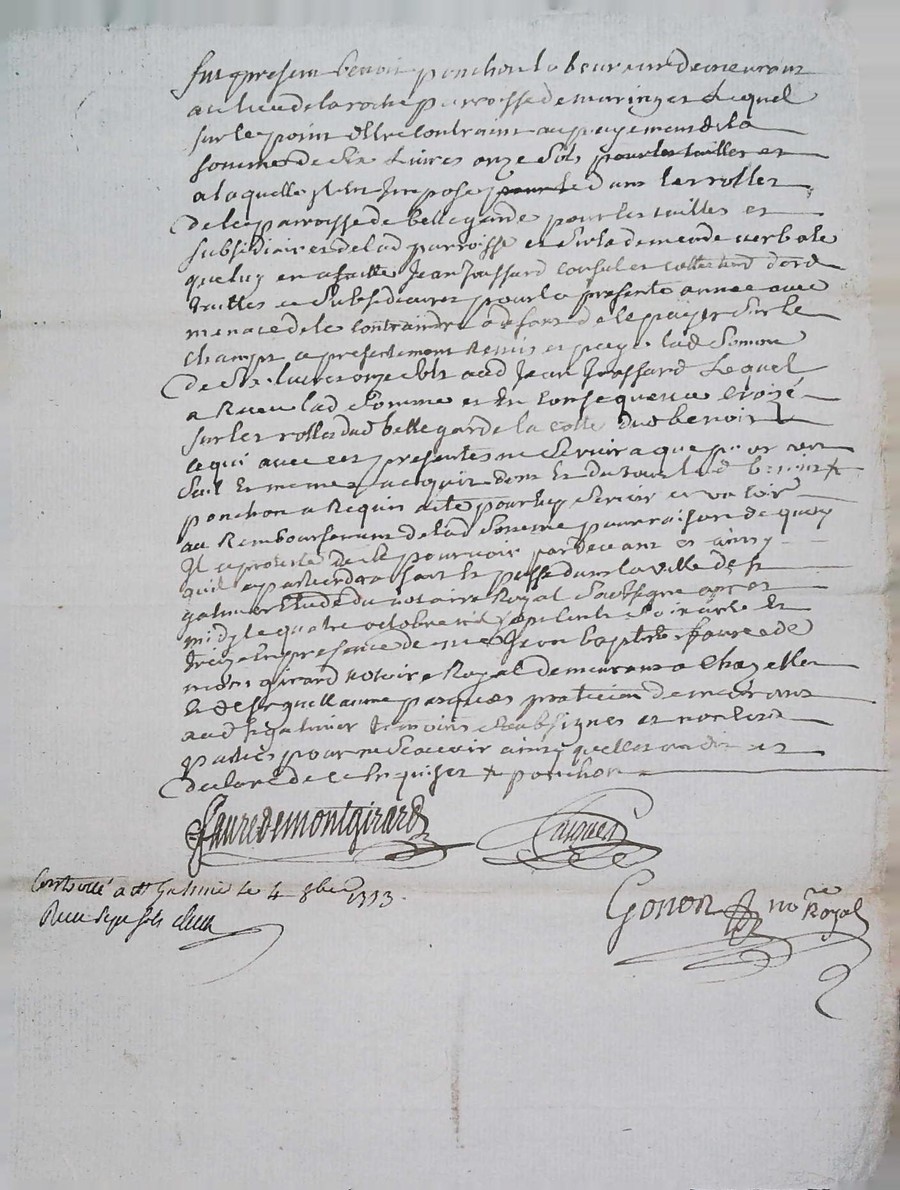 fut present benoit ponchon laboureur demeurant
au lieu de la roche parroisse de maringes Lequel
sur le point d'estre Contraint au payement de la
somme de Six Livres onze Sols pour les tailles et
a laquelle il est Imposé pour le dans les rolles
de la parroisse de bellegarde pour les tailles et
subsidiaires de lad parroisse et Sur la demande verbale
que luy en a faitte Jean Jossard Consul et collecteur desd
tailles et Subsidiaires pour la presente année avec
menace de le Contraindre a deffaut de le payer Sur le
champt a presentement Remis et payé lad Somme
de Six Livres onze Sols aud Jean Jossard Lequel
a Receu lad Somme et En Consequence Croisé
sur les rolles dud bellegarde la cotte dud benoit
ce qui avec ces presentes ne Servira que pour un
Seul et meme acquit dont et du tout led benoit
ponchon a Requis acte pour luy Servir et valoir
au Remboursement de lad Somme pour raison de quoy
Il a protesté de se pourvoir pardevant et ainsy
qu'il apartiendra fait et passé dans la ville de St
galmier Etude du notaire Royal Soubsigne apres
midy le quatre octobre mil Sept Cents
treize En presence de me Jean baptiste faure de
mont girard notaire Royal demeurant a Chazelles
et de Sr guillaume pasques praticien demeurant
aud St galmier temoins Soubsignes et non lesd
parties pour ne Scavoir ainsy quelles ont dit et
declaré de ce Enquises ponchon
Faure de montgirard Pasques
Controllé a St Galmier le 4 8bre 1713.
Receu sept sols
Gonon nore
Royal